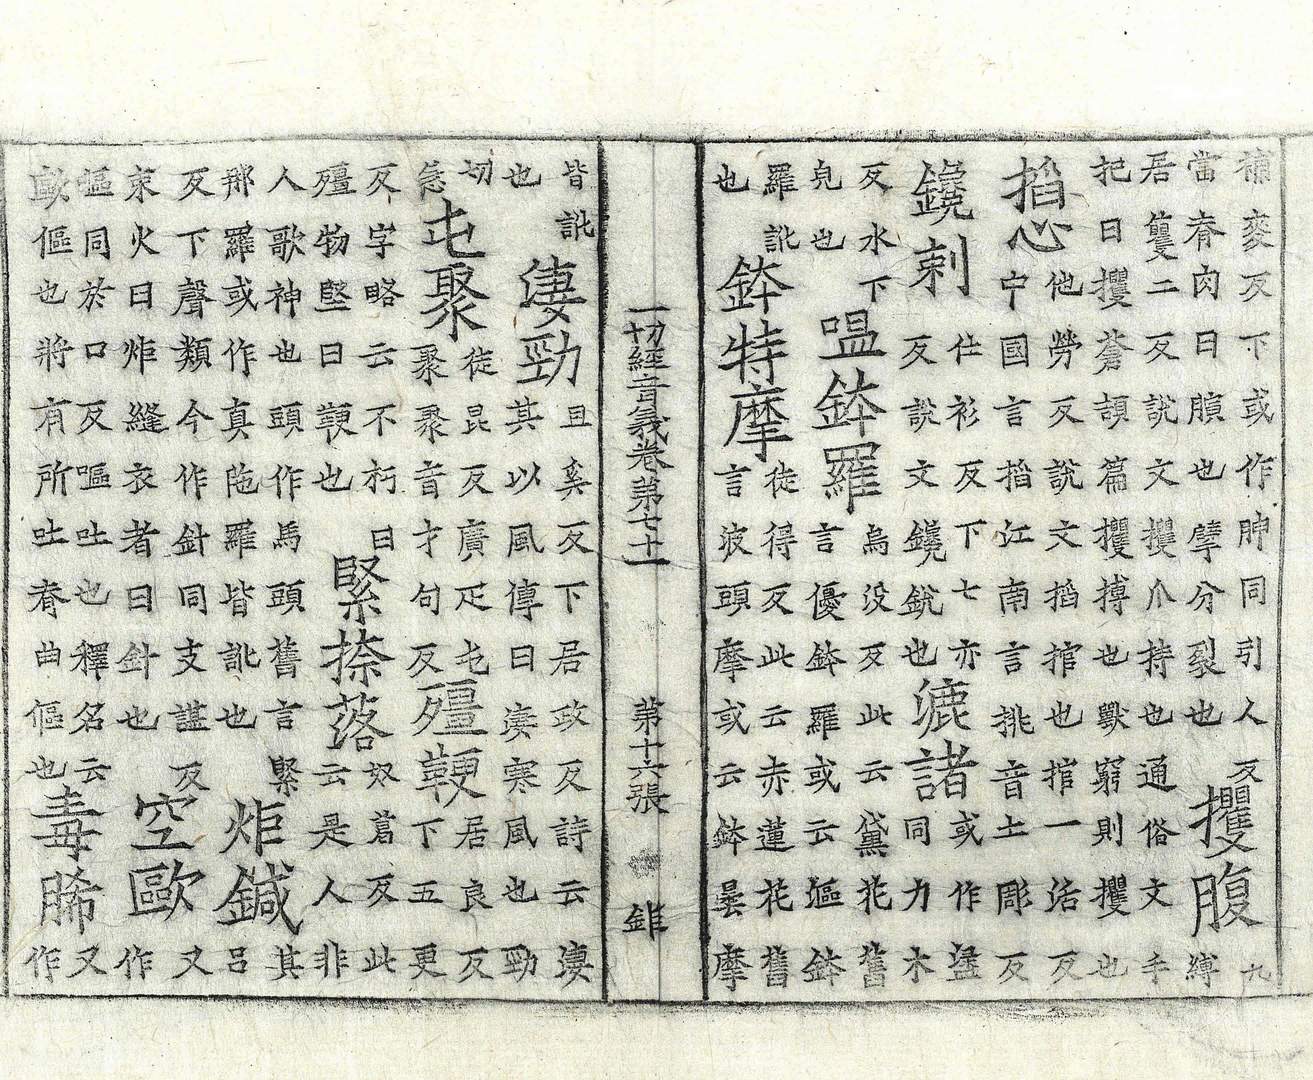 補麥反下或作胂同引人反
當脊肉曰䐿也擘分裂也
攫腹
九
縛
居籰二反說文攫爪持也通俗文手
把曰攫蒼頡篇攫搏也獸窮則攫也
搯心
他勞反說文搯捾也捾一活反
中國言搯江南言挑音土彫反
鑱刺
仕衫反下七亦
反說文鑱銳也
漉諸
或作盝
同力木
反水下
皃也
嗢鉢羅
烏没反此云黛花舊
言優鉢羅或云漚鉢
羅訛
也
鉢特摩
徒得反此云赤蓮花舊
言波頭摩或云鉢曇摩
一切經音義卷第七十一 第十六張 錐
皆訛
也
凄勁
且奚反下居政反詩云淒
其以風傳曰淒寒風也勁
切
急
屯聚
徒昆反廣疋屯
聚聚音才句反
殭鞕
居良反
下五更
反字略云不朽曰
殭物堅曰鞕也
緊捺落
奴葛反此
云是人非
人歌神也頭作馬頭舊言緊
那羅或作真陁羅皆訛也
炬鍼
其
呂
反下聲類今作針同支諶反
束火曰炬縫衣者曰針也
空歐
又
作
嘔同於口反嘔吐也釋名云
歐傴也將有所吐脊曲傴也
毒脪
又
作